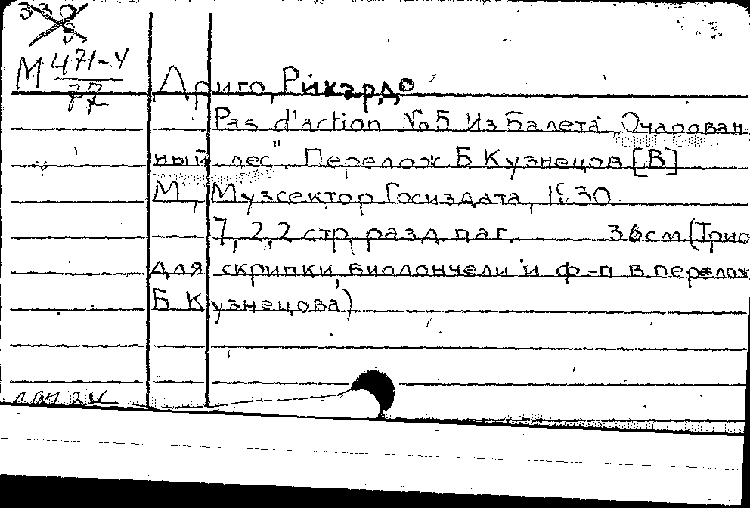 330
М 471-4
77
Дриго, Рикардо
Pas d'action №5 Из балета „Очарован
ный лес". Перелож Б Кузнецов [В]
М, Музсектор Госиздата, 1930
7, 2, 2 стр разд паг. 36см (Трио
для скрипки, виолончели и ф-п в перелож
Б Кузнецова)